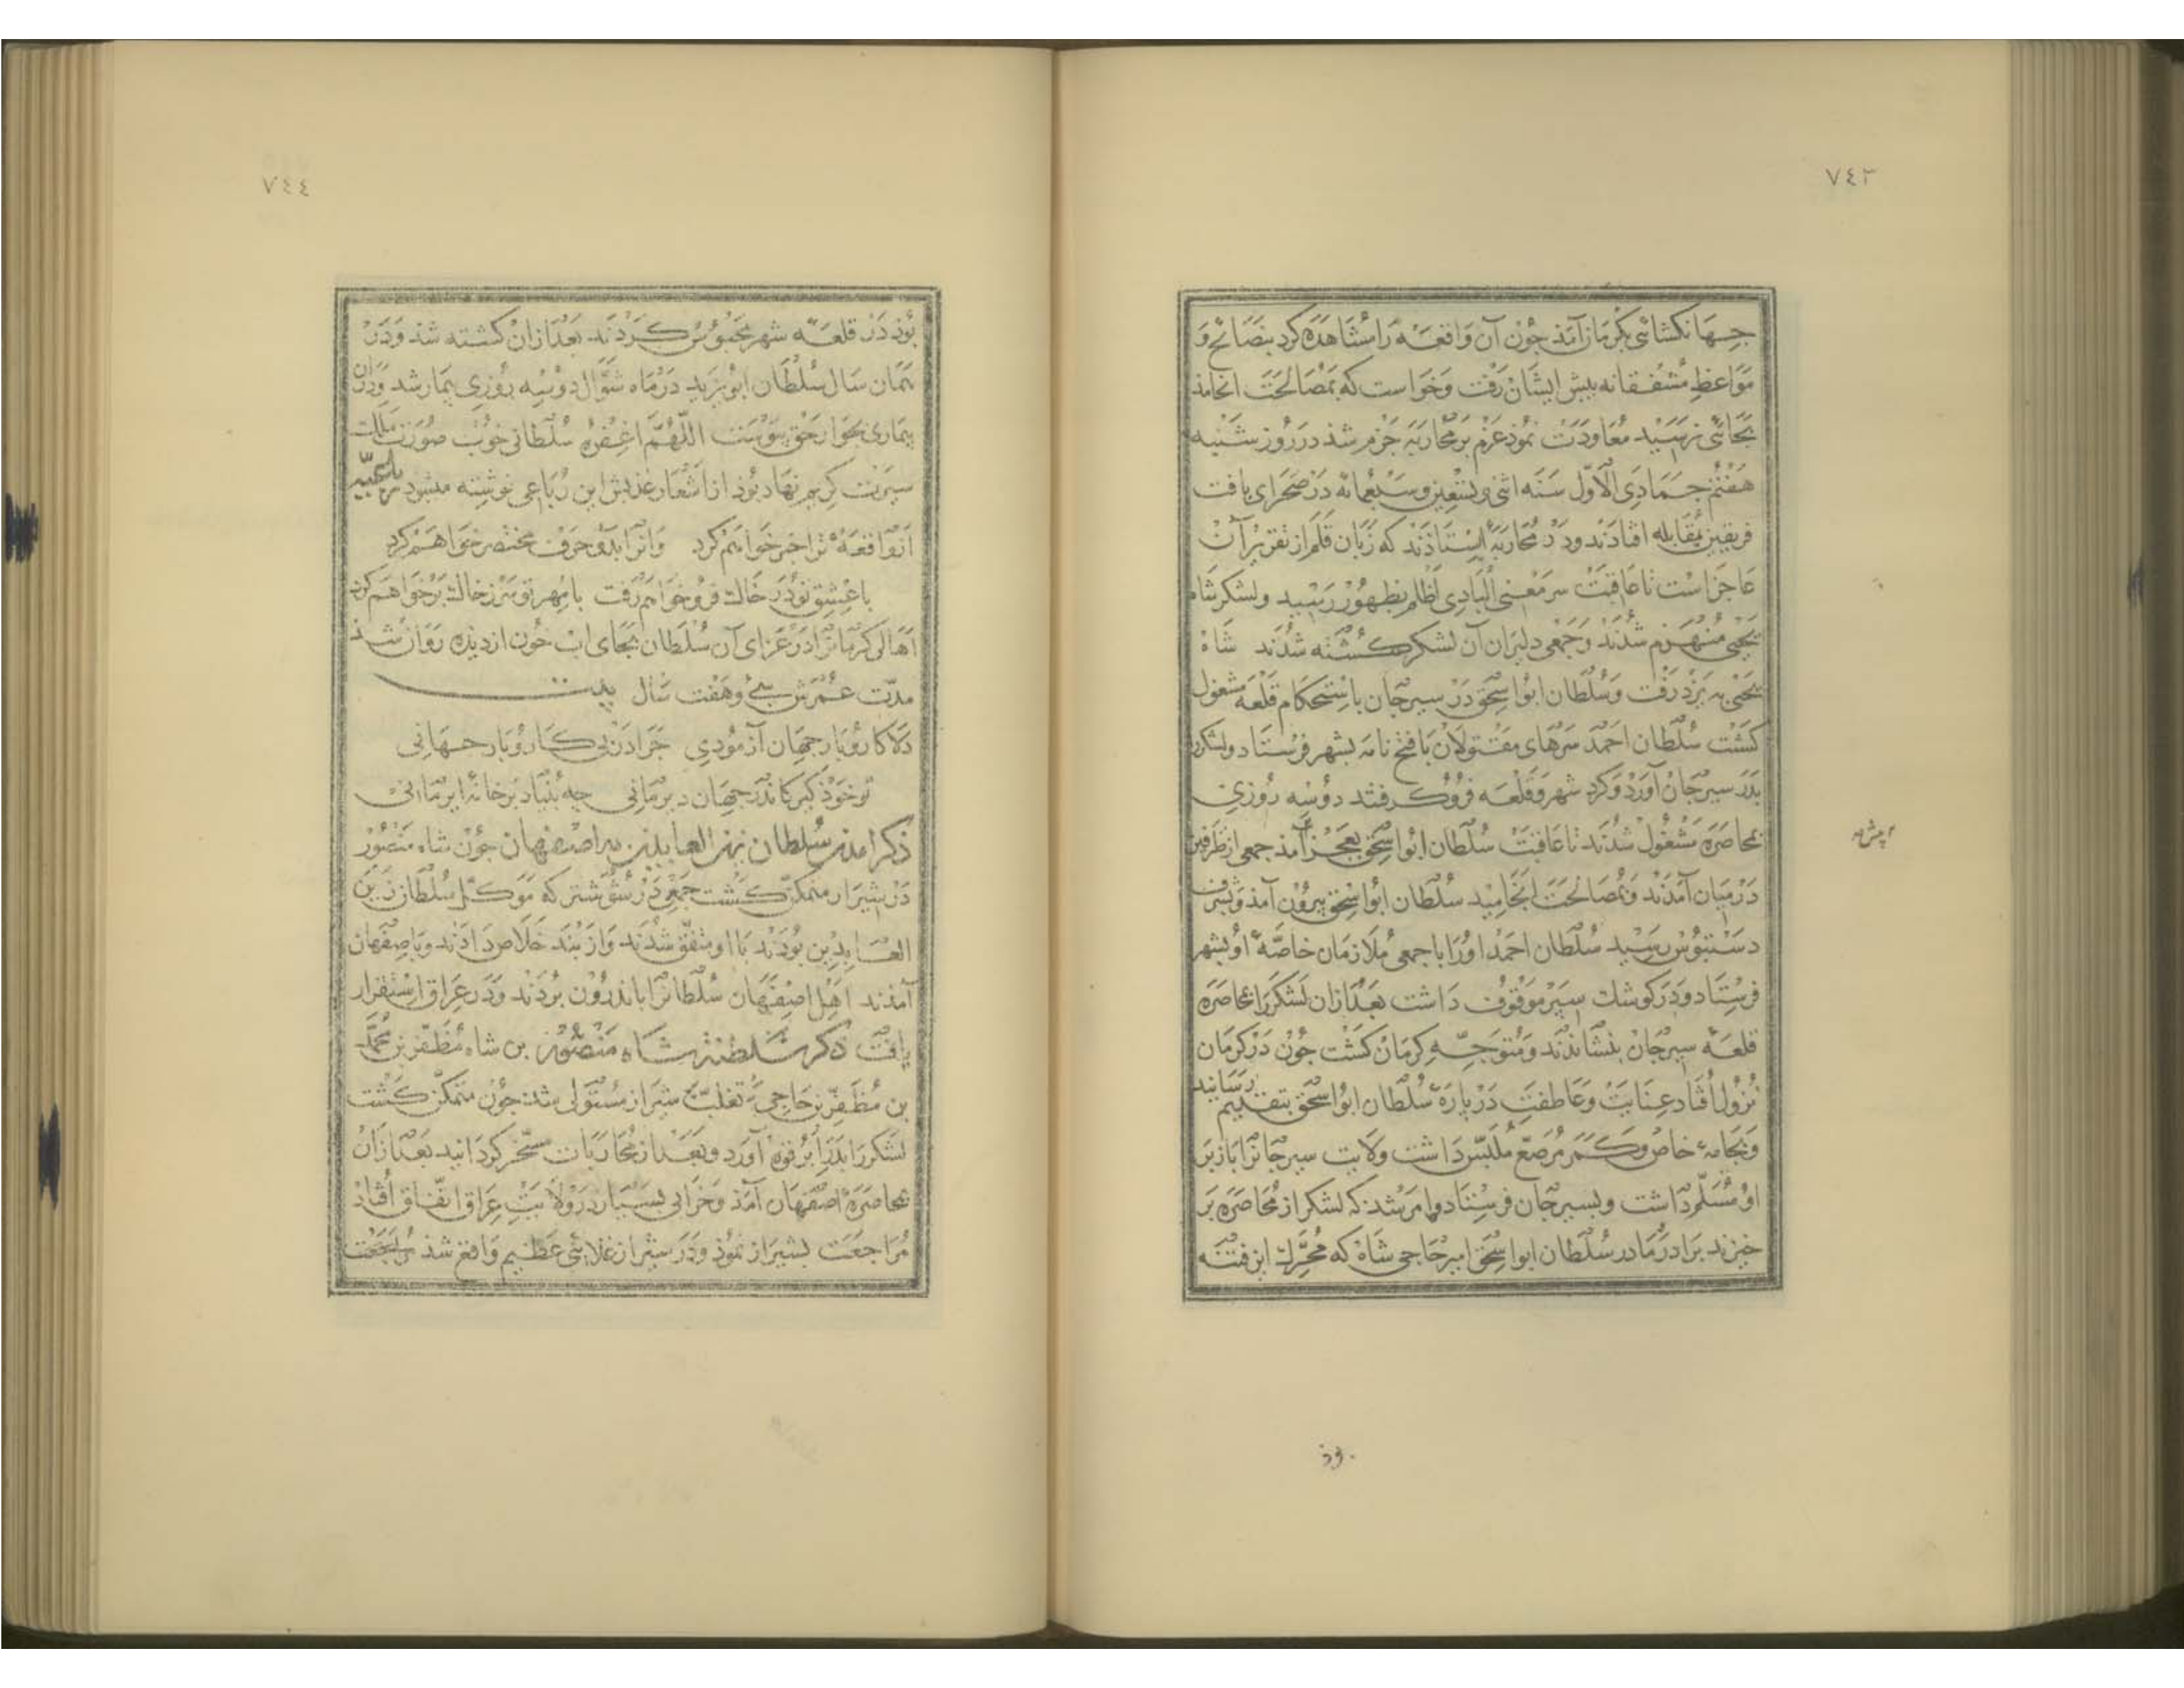 ٧٤٣
جهانکشائی بکرمان آمذ جون آن واقعه را مشاهده کرد بنصائح و
مواعظ مشفقانه پیش ایشان رفت وخواست که بمصالحت انجامذ
بجائی نرسید معاودت نمود عزم بر محاربه جزم شذ در روز شنبه
هفتم جمادی الاول سنه اثنی و تسعین و سبعمائه در صحرای بافت
فریقین بمقابله افتادند ودر محاربه ایستاذند که زبان قلم از تقریر آن
عاجز است تا عاقبت سر معنی البادی اظلم بظهور رسید ولشکر شاه
یحیی منهزم شدند وجمعی دلیران آن لشکر کشته شدند شاه
یحیی به یزد رفت وسلطان ابوا سحق در سیرجان باستحکام قلعه مشغول
کشت سلطان احمد سرهای مقتولان با فتح نامه بشهر فرستاد ولشکر
بدر سیرجان آورد وکرد شهر وقلعه فروکرفتند دوسه روزی
بمحاصره مشغول شدند تا عاقبت سلطان ابوا سحق بعجز آمذ جمعی از طرفین
در میان آمدند وبمصالحت انجامید سلطان ابوا سحق بیرون آمذ وبشرف
دستبوس رسید سلطان احمد اورا با جمعی ملازمان خاصه او بشهر
فرستاد ودر کوشک سیر موقوف داشت بعد ازان لشکر را بمحاصره
قلعه سیرجان بنشاندند ومتوجه کرمان کشت جون در کرمان
نزول افتاد عنایت وعاطفت در باره سلطان ابوا سحق بتقدیم رسانید
وبجامه خاص وکمر مرصع ملبس داشت ولایت سیرجانرا باز بر
او مسلم داشت وبسیرجان فرستاد وامر شد که لشکر از محاصره بر
خیزند برادر مادر سلطان ابوا سحق امیر حاجی شاه که محرک این فتنه
وذ
٧٤٤
بوذ در قلعه شهر محبوس کردند بعد ازان کشته شذ ودر
همان سال سلطان ابو یزید در ماه شوال دوسه روزی بیمار شد ودران
بیماری بجوار حق پیوست اللهم اغفره سلطانی خوب صورت ملک
سیرت کریم نهاد بوذ از اشعار عذبش این رباعی نوشته میشود
انواقعۀ ترا خبر خواهم کرد وانرا بدو حرف مختصر خواهم کرد
با عشق تو در خاک فرو خواهم رفت با مهر تو سر ز خاک بر خواهم کرد
اهالی کرمانرا در عزای آن سلطان بجای اب خون از دیده روان شد
مدت عمرش سی وهفت سال بیت
دلا کار وبار جهان آزمودی جرا در پی کار وبار جهانی
تو خوذ کیر کاندر جهان دیر مانی جه بنیاد بر خانۀ ایرمانی
ذکر امدن سلطان زین العابدین به اصفهان جون شاه منصور
در شیراز متمکن کشت جمعی در شوشتر که موکل سلطان زین
العابدین بودند با او متفق شدند واز بند خلاص دادند وباصفهان
آمذند اهل اصفهان سلطانرا باندرون بردند ودر عراق استقرار
یافت ذکر سلطنت شاه منصور بن شاه مظفر بن محمد
بن مظفر بن حاجی بتغلب شیراز مستولی شد جون متمکن کشت
لشکر را بدر ابرقوه آورد وبعد از محاربات مسخر کردانید بعد ازان
بمحاصره اصفهان آمذ وخرابی بسیار در ولایت عراق اتفاق افتاد
مراجعت بشیراز نموذ ودر شیراز غلائی عظیم واقع شذ